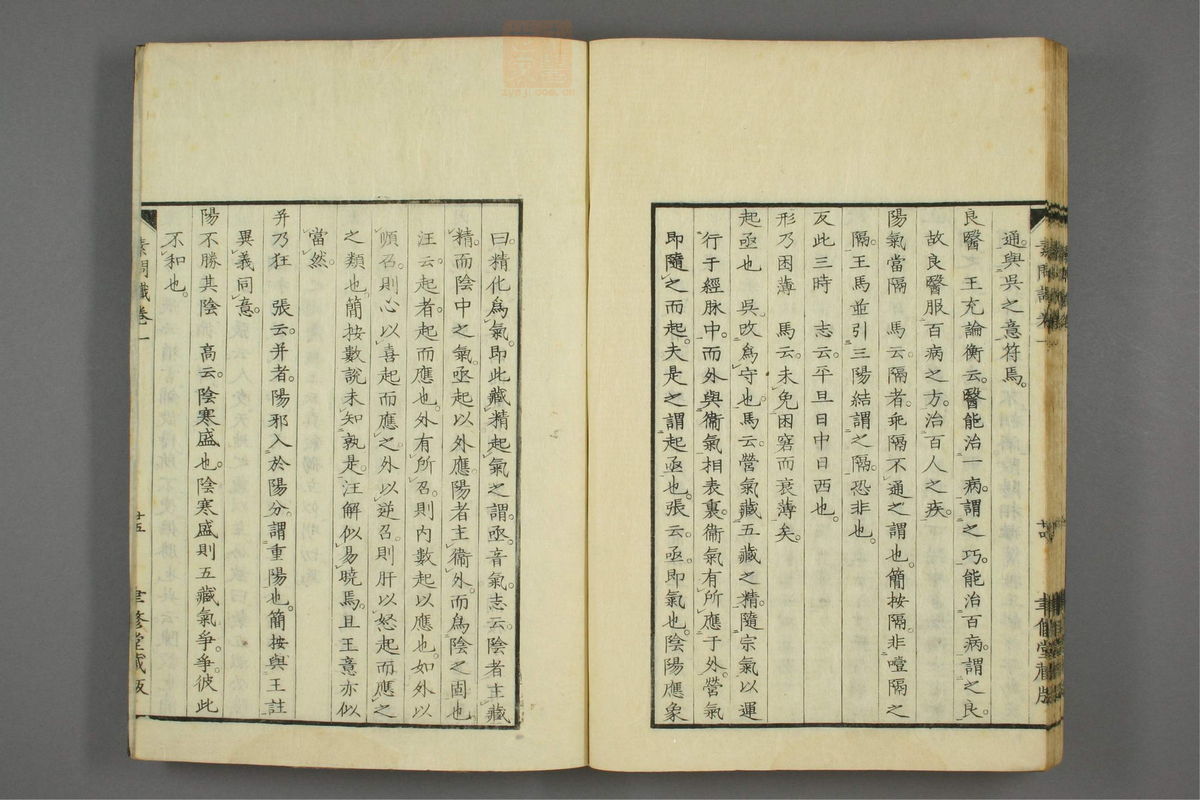 通與吳之意符焉。
良醫 王充論衡云。醫能治一病。謂之巧。能治百病。謂之良。
故良醫服百病之方。治百人之疾。
陽氣當隔 馬云。隔者。乖隔不通之謂也。簡按隔。非噎隔之
隔。王馬並引三陽結謂之隔。恐非也。
反此三時 志云。平旦日中日西也。
形乃困薄 馬云。未免困窘而衰薄矣。
起亟也 吳改爲守也。馬云。營氣藏五藏之精。隨宗氣以運
行于經脉中。而外與衞氣相表裏。衞氣有所應于外。營氣
即隨之而起。夫是之謂起亟也。張云。亟即氣也。陰陽應象
素問識卷一
聿修堂藏版
曰。精化爲氣。即此藏精起氣之謂。亟。音氣。志云。陰者主藏
精。而陰中之氣。亟起以外應。陽者主衞外。而爲陰之固也
汪云。起者。起而應也。外有所召。則內數起以應也。如外以
順召。則心以喜起而應之。外以逆召。則肝以怒起而應之
之類也。簡按數說未知孰是。汪解似易曉焉。且王意亦似
當然。
并乃狂 張云。并者。陽邪入於陽分。謂重陽也。簡按與王註
異義同意。
陽不勝其陰 高云。陰寒盛也。陰寒盛則五藏氣爭。爭。彼此
不和也。
素問識卷一
廿五
聿修堂藏版